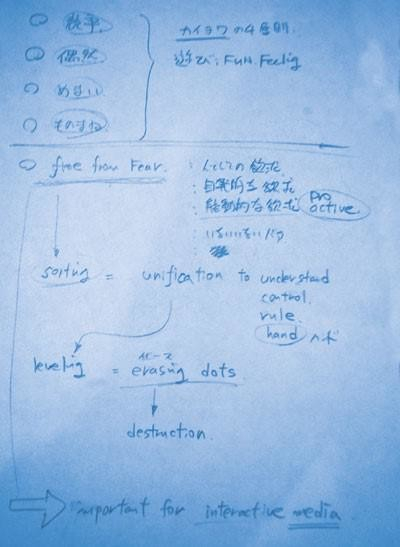 ○ 競争
○ 偶然
○ めまい
○ ものまね
カイヨワの4原則
遊び: FUN. Feelig
○ free from Fear.
: 人としての欲求
: 自発的な欲求
: 能動的な欲求 pro active.
: いないいないバァ
sorting = unification to understand
control.
rule.
hand へ
leveling = erasing dots
イレース
↓
destruction.
⇒ important for interactive media.